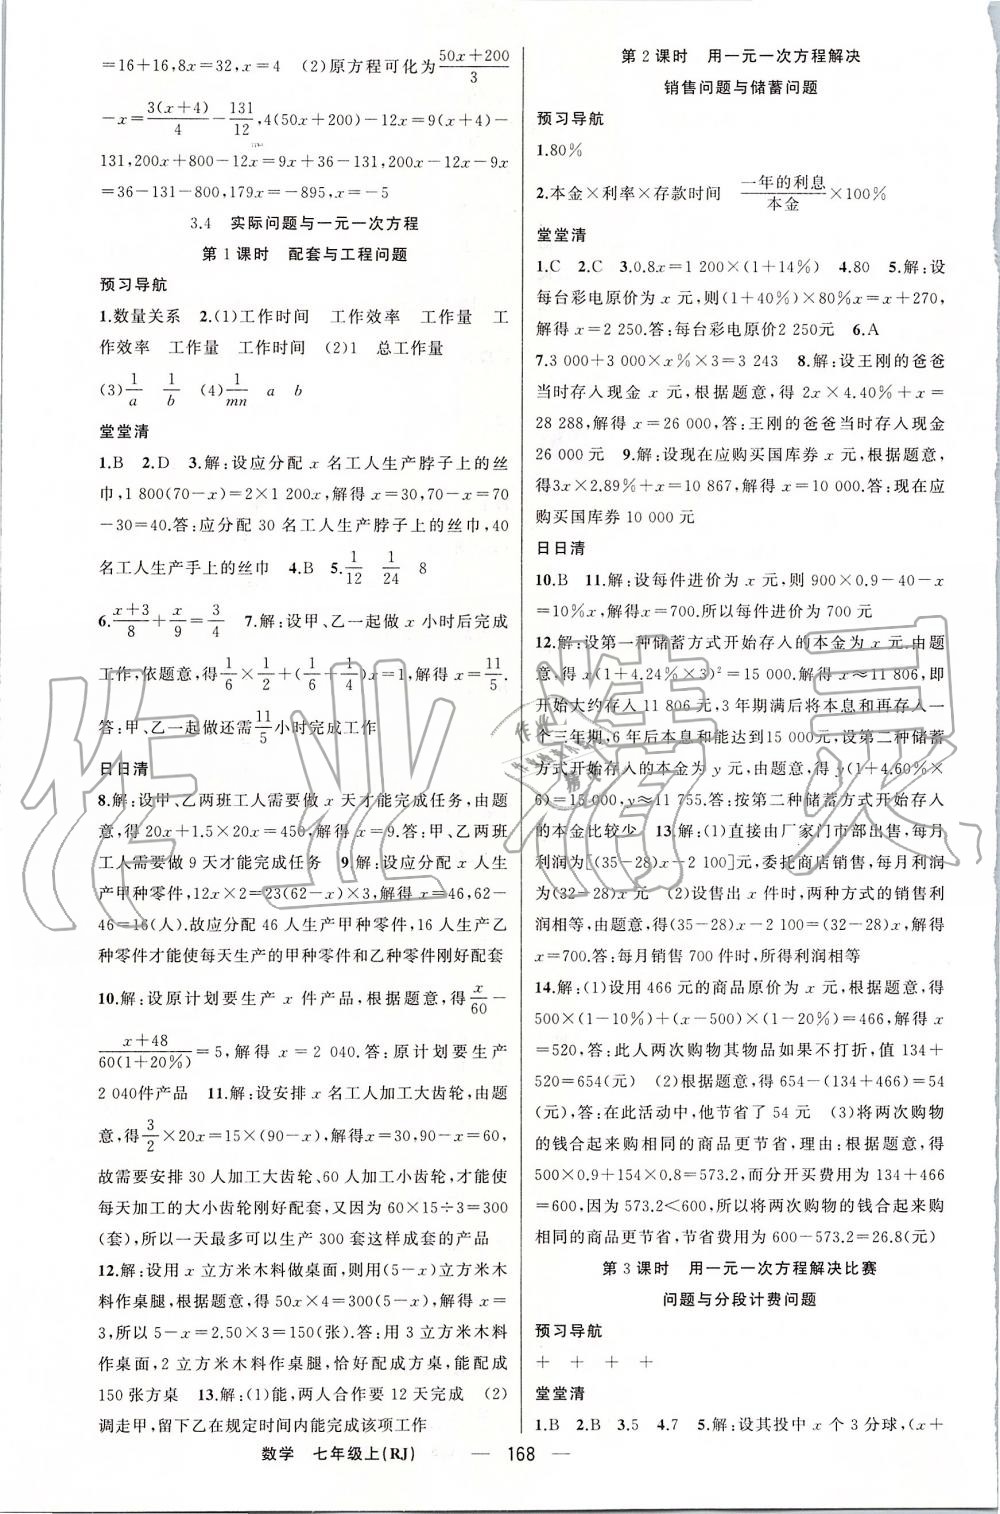 =16+16,8x=32,x=4 (2)原方程可化为(50x+200)/3
-x=3(x+4)/4-131/12,4(50x+200)-12x=9(x+4)-
131,200x+800-12x=9x+36-131,200x-12x-9x
=36-131-800,179x=-895,x=-5
3.4 实际问题与一元一次方程
第1课时 配套与工程问题
预习导航
1.数量关系 2.(1)工作时间 工作效率 工作量 工
作效率 工作量 工作时间 (2)1 总工作量
(3)1/a 1/b (4)1/mn a b
堂堂清
1.B 2.D 3.解:设应分配 x 名工人生产脖子上的丝
巾,1 800(70-x)=2×1 200x,解得 x=30,70-x=70
-30=40.答:应分配 30 名工人生产脖子上的丝巾,40
名工人生产手上的丝巾 4.B 5.1/12 1/24 8
6.(x+3)/8+x/9=3/4 7.解:设甲、乙一起做 x 小时后完成
工作,依题意,得1/6×1/2+(1/6+1/4)x=1,解得 x=11/5.
答:甲、乙一起做还需11/5小时完成工作
日日清
8.解:设甲、乙两班工人需要做 x 天才能完成任务,由题
意,得 20x+1.5×20x=450,解得 x=9.答:甲、乙两班
工人需要做 9 天才能完成任务 9.解:设应分配 x 人生
产甲种零件,12x×2=23(62-x)×3,解得 x=46,62-
46=16(人).故应分配 46 人生产甲种零件,16 人生产乙
种零件才能使每天生产的甲种零件和乙种零件刚好配套
10.解:设原计划要生产 x 件产品,根据题意,得x/60-
(x+48)/60(1+20%)=5,解得 x=2 040.答:原计划要生产
2 040件产品 11.解:设安排 x 名工人加工大齿轮,由题
意,得3/2×20x=15×(90-x),解得 x=30,90-x=60,
故需要安排 30 人加工大齿轮、60 人加工小齿轮,才能使
每天加工的大小齿轮刚好配套,又因为 60×15÷3=300
(套),所以一天最多可以生产 300 套这样成套的产品
12.解:设用 x 立方米木料做桌面,则用(5-x)立方米木
料作桌腿,根据题意,得 50x×4=300(5-x),解得 x=
3,所以 5-x=2.50×3=150(张).答:用 3 立方米木料
作桌面,2 立方米木料作桌腿,恰好配成方桌,能配成
150 张方桌 13.解:(1)能,两人合作要 12 天完成 (2)
调走甲,留下乙在规定时间内能完成该项工作
第2课时 用一元一次方程解决
销售问题与储蓄问题
预习导航
1.80%
2.本金×利率×存款时间 一年的利息/本金×100%
堂堂清
1.C 2.C 3.0.8x=1 200×(1+14%) 4.80 5.解:设
每台彩电原价为 x 元,则(1+40%)×80%x=x+270,
解得 x=2 250.答:每台彩电原价2 250元 6.A
7.3 000+3 000×x%×3=3 243 8.解:设王刚的爸爸
当时存入现金 x 元,根据题意,得 2x×4.40%+x=
28 288,解得 x=26 000,答:王刚的爸爸当时存入现金
26 000 元 9.解:设现在应购买国库券 x 元,根据题意,
得3x×2.89%+x=10 867,解得 x=10 000.答:现在应
购买国库券 10 000 元
日日清
10.B 11.解:设每件进价为 x 元,则 900×0.9-40-x
=10%x,解得x=700.所以每件进价为 700 元
12.解:设第一种储蓄方式开始存入的本金为 x 元.由题
意,得 x(1+4.24%×3)²=15 000,解得x≈11 806,即
开始大约存入 11 806 元,3 年期满后将本息和再存入一
个三年期,6 年后本息和能达到15 000元,设第二种储蓄
方式开始存入的本金为 y 元,由题意,得y(1+4.60%×
6)=15 000,y≈11 755.答:按第二种储蓄方式开始存入
的本金比较少 13.解:(1)直接由厂家门市部出售,每月
利润为[(35-28)x-2 100]元,委托商店销售,每月利润
为(32-28)x元 (2)设售出 x 件时,两种方式的销售利
润相等,由题意,得(35-28)x-2 100=(32-28)x,解得
x=700.答:每月销售 700 件时,所得利润相等
14.解:(1)设用 466 元的商品原价为 x 元,根据题意,得
500×(1-10%)+(x-500)×(1-20%)=466,解得 x
=520,答:此人两次购物其物品如果不打折,值 134+
520=654(元) (2)根据题意,得 654-(134+466)=54
(元),答:在此活动中,他节省了 54 元 (3)将两次购物
的钱合起来购相同的商品更节省,理由:根据题意,得
500×0.9+154×0.8=573.2,而分开买费用为 134+466
=600,因为 573.2<600,所以将两次购物的钱合起来购
相同的商品更节省,节省费用为 600-573.2=26.8(元)
第3课时 用一元一次方程解决比赛
问题与分段计费问题
预习导航
+ + + +
堂堂清
1.B 2.B 3.5 4.7 5.解:设其投中 x 个 3 分球,(x+
数学 七年级上(RJ) — 168 —
作业精灵